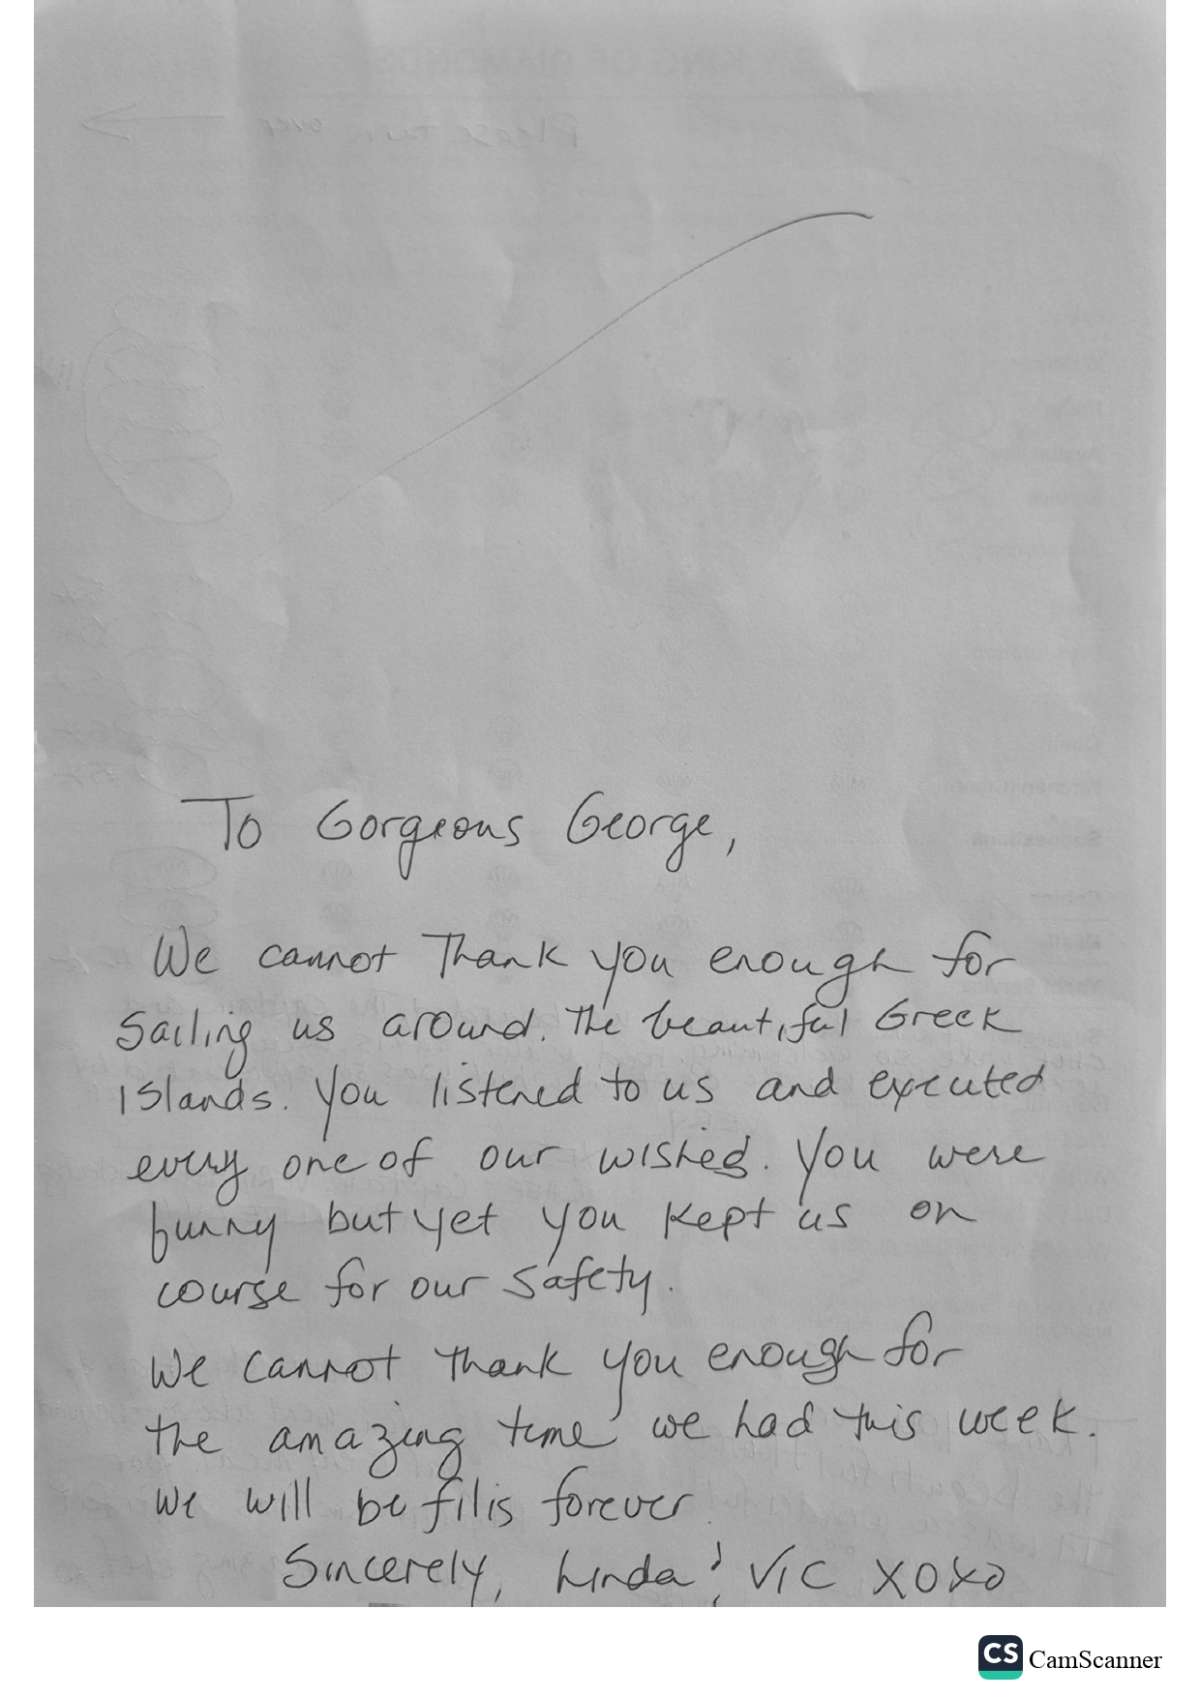 To Gorgeous George,
We cannot Thank you enough for
Sailing us around. The beautiful Greek
Islands. You listened to us and executed
every one of our wished. You were
funny but yet you kept us on
course for our safety.
We cannot thank you enough for
the amazing time we had this week.
We will be filis forever.
Sincerely, Linda & Vic XOXO
CS CamScanner